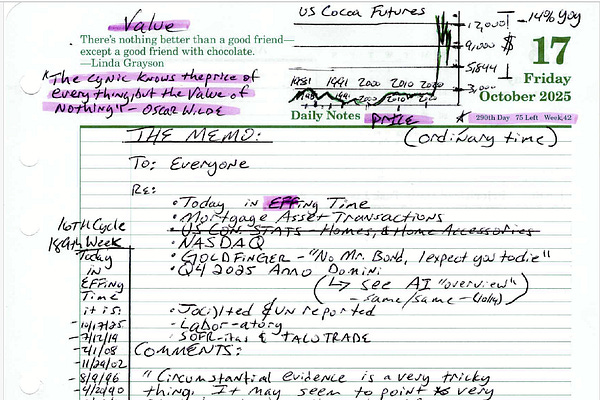 Value
There's nothing better than a good friend—
except a good friend with chocolate.
—Linda Grayson
"The cynic knows the price of
everything, but the value of
Nothing" - OSCAR WILDE
US Cocoa Futures
12,000
-14% yoy
9,000
$
5,844
3,000
1981 1991 2000 2010 2020
17
Friday
October 2025
Daily Notes
PRICE
290th Day 75 Left Week 42
THE MEMO:
(ordinary time)
To: Everyone
RE:
• Today in EFFing Time
• Mortgage Asset Transactions
• US CON. STATS - Homes, & Home Accessories
• NASDAQ
• GOLDFINGER - "No Mr. Bond, I expect you to die"
• Q4 2025 Anno Domini
(↳ see AI "overview")
- same/same - (lolly)
• Jacilted & UN reported
• Labor-atory
• SOFR-itas & TACO TRADE
16TH Cycle
189th Week
Today
in
EFFing
Time
it is:
- 10/17/25
- 7/12/19
- 2/1/08
- 11/29/02
- 8/9/96
- 4/20/90
COMMENTS:
"Circumstantial evidence is a very tricky
thing. It may seem to point very